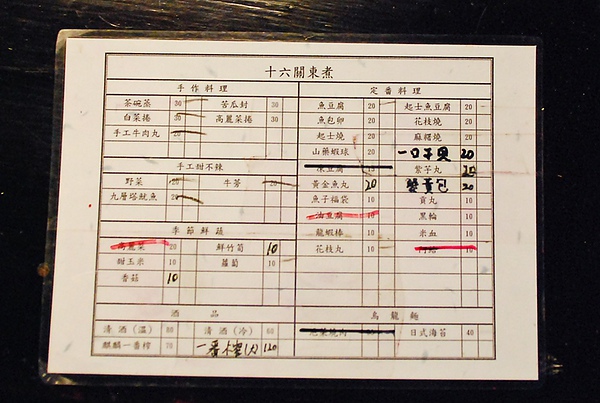 十六關東煮
手作料理
茶碗蒸 30 苦瓜封 30
白菜捲 30 高麗菜捲 30
手工牛肉丸 20
手工甜不辣
野菜 20 牛蒡 20
九層塔魷魚 20
季節鮮蔬
高麗菜 20 鮮竹筍 10
甜玉米 10 蘿蔔 10
香菇 10
酒品
清酒(溫) 80 清酒(冷) 60
麒麟一番榨 70 一番榨(大) 120
定番料理
魚豆腐 20 起士魚豆腐 20
魚包卵 20 花枝燒 20
起士燒 20 麻糬燒 20
山藥蝦球 20 一口干貝 20
凍豆腐 15 紫子丸 20
黃金魚丸 20 蟹黃包 20
魚子福袋 10 貢丸 10
油豆腐 10 黑輪 10
龍蝦棒 10 米血 10
花枝丸 10 10
烏龍麵
日式海苔 40